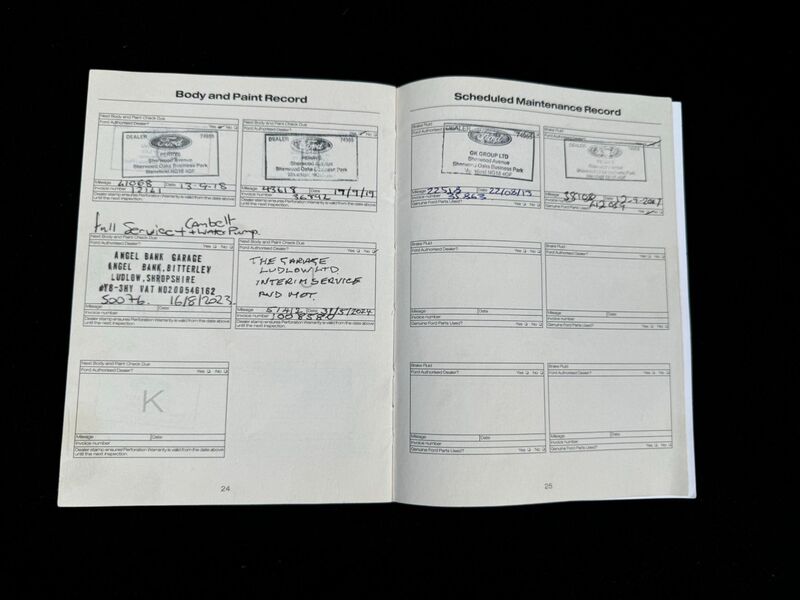 Body and Paint Record
Next Body and Paint Check Due
Ford Authorised Dealer? Yes No
DEALER Ford 74565
PERRYS
Sherwood Avenue
Sherwood Oaks Business Park
Mansfield NG18 4GF
Mileage 41008 Date 13-9-18
Invoice number
Dealer stamp ensures Perforation Warranty is valid from the date above
until the next inspection.
Yes No
DEALER Ford 74565
PERRYS
Sherwood Avenue
Sherwood Oaks Business Park
Mansfield NG18
Mileage 43618 Date 19/9/19
Invoice number 36892
Dealer stamp ensures Perforation Warranty is valid from the date above
until the next inspection.
Full Service + Cambelt
+ Water Pump
Ford Authorised Dealer? Yes No
ANGEL BANK GARAGE
ANGEL BANK, BITTERLEY
LUDLOW, SHROPSHIRE
SY8-3HY VAT NO200546162
50076. 16/8/2023
Dealer stamp ensures Perforation Warranty is valid from the date above
until the next inspection.
Next Body and Paint Check Due
Ford Authorised Dealer? Yes No
THE GARAGE
LUDLOW LTD
INTERIM SERVICE
AND MOT.
Mileage Date 31/5/2024
Invoice number 1008580
Dealer stamp ensures Perforation Warranty is valid from the date above
until the next inspection.
Next Body and Paint Check Due
Ford Authorised Dealer? Yes No
K
Mileage Date
Invoice number
Dealer stamp ensures Perforation Warranty is valid from the date above
until the next inspection.
24
Scheduled Maintenance Record
Brake Fluid
Ford Authorised Dealer?
DEALER Ford 74565
GK GROUP LTD
Sherwood Avenue
Sherwood Oaks Business Park
NG18 4GF
Mileage Date
Invoice number
Genuine Ford Parts Used? Yes No
Brake Fluid
DEALER Ford
Sherwood Avenue
Mileage Date 12-9-2017
Invoice number
Genuine Ford Parts Used? Yes No
Brake Fluid
Ford Authorised Dealer? Yes No
Mileage Date
Invoice number
Genuine Ford Parts Used? Yes No
Brake Fluid
Ford Authorised Dealer? Yes No
Mileage Date
Invoice number
Genuine Ford Parts Used? Yes No
Brake Fluid
Ford Authorised Dealer? Yes No
Mileage Date
Invoice number
Genuine Ford Parts Used? Yes No
Brake Fluid
Ford Authorised Dealer? Yes No
Mileage Date
Invoice number
Genuine Ford Parts Used? Yes No
25